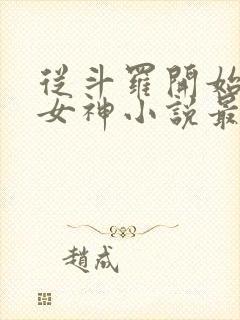 從斗羅開始
女神小說最
趙成